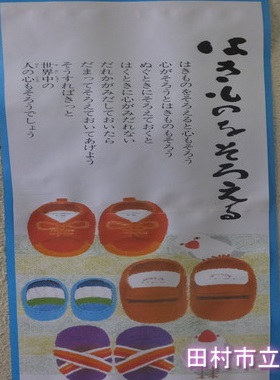 はきものをそろえる
はきものをそろえると心もそろう
心がそろうとはきものもそろう
ぬぐときにそろえておくと
はくときに心がみだれない
だれかがみだしておいたら
だまってそろえておいてあげよう
そうすればきっと
世界中の
人の心もそろうでしょう
田村市立